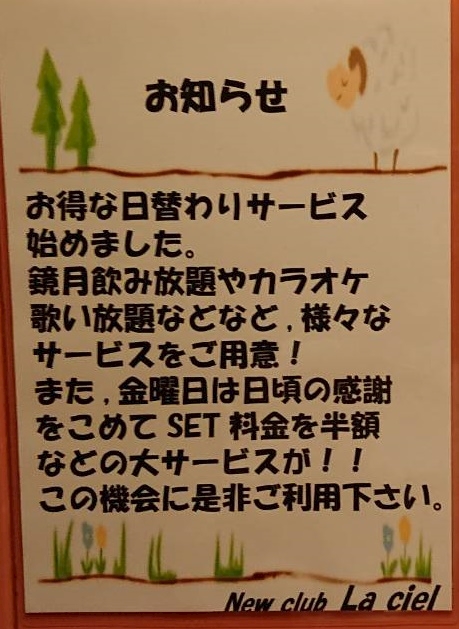 お知らせ
お得な日替わりサービス
始めました。
鏡月飲み放題やカラオケ
歌い放題などなど,様々な
サービスをご用意!
また,金曜日は日頃の感謝
をこめてSET料金を半額
などの大サービスが!!
この機会に是非ご利用下さい。
New club La ciel